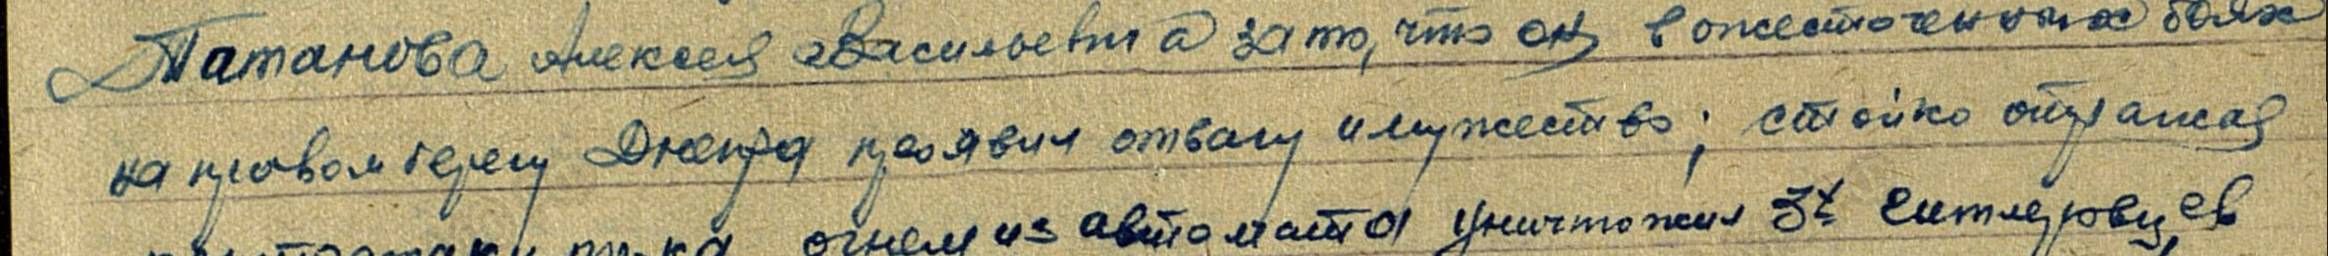 Патанова Алексея Васильевича за то, что он в ожесточенных боях
на правом берегу Днепра проявил отвагу и мужество; стойко отражая
контратаки огнем из автомата уничтожил 3х гитлеровцев